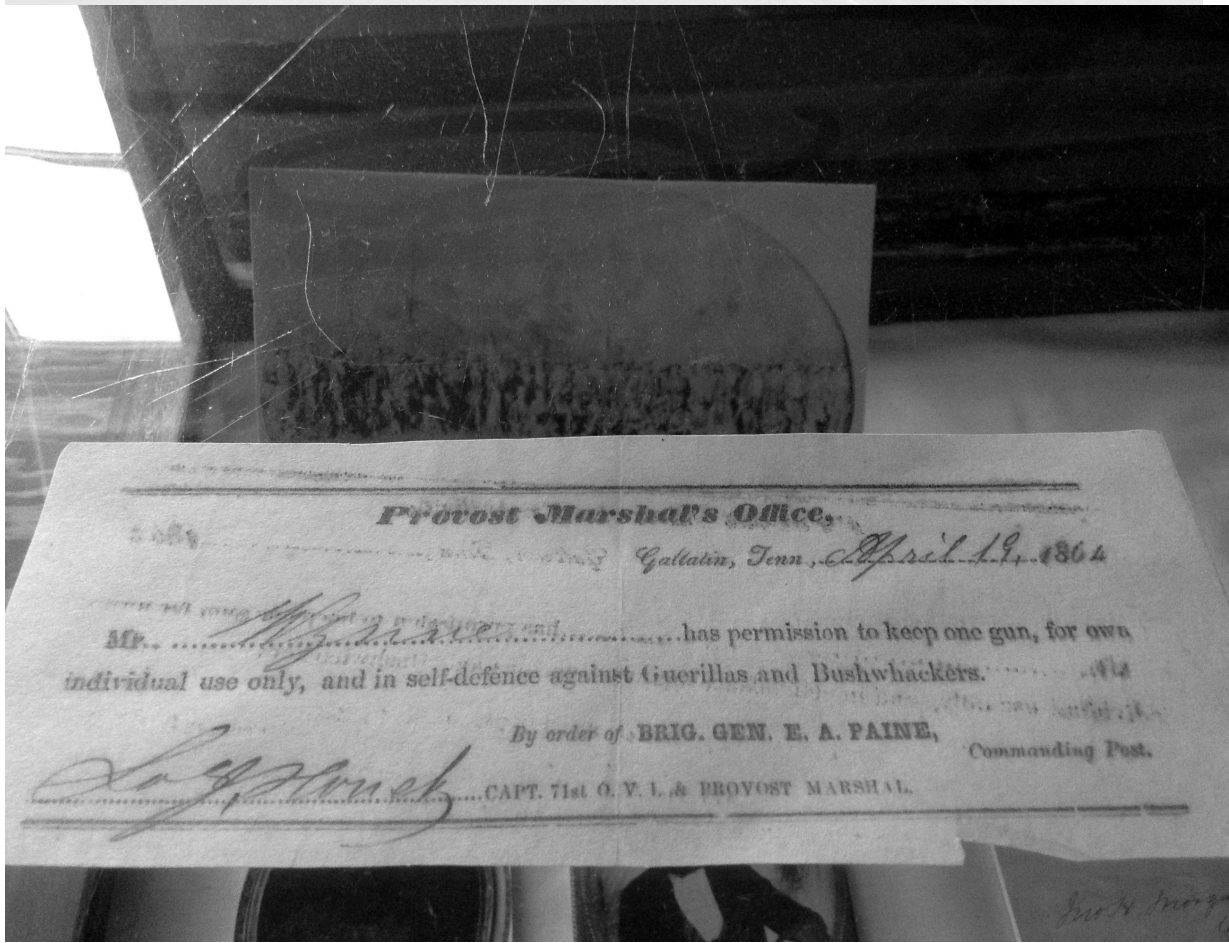 Provost Marshal's Office,
Gallatin, Tenn., April 19, 1864
Mr. Wynne has permission to keep one gun, for own
individual use only, and in self-defence against Guerillas and Bushwhackers.
By order of BRIG. GEN. E. A. PAINE,
Commanding Post.
CAPT. 71st O. V. I. & PROVOST MARSHAL.